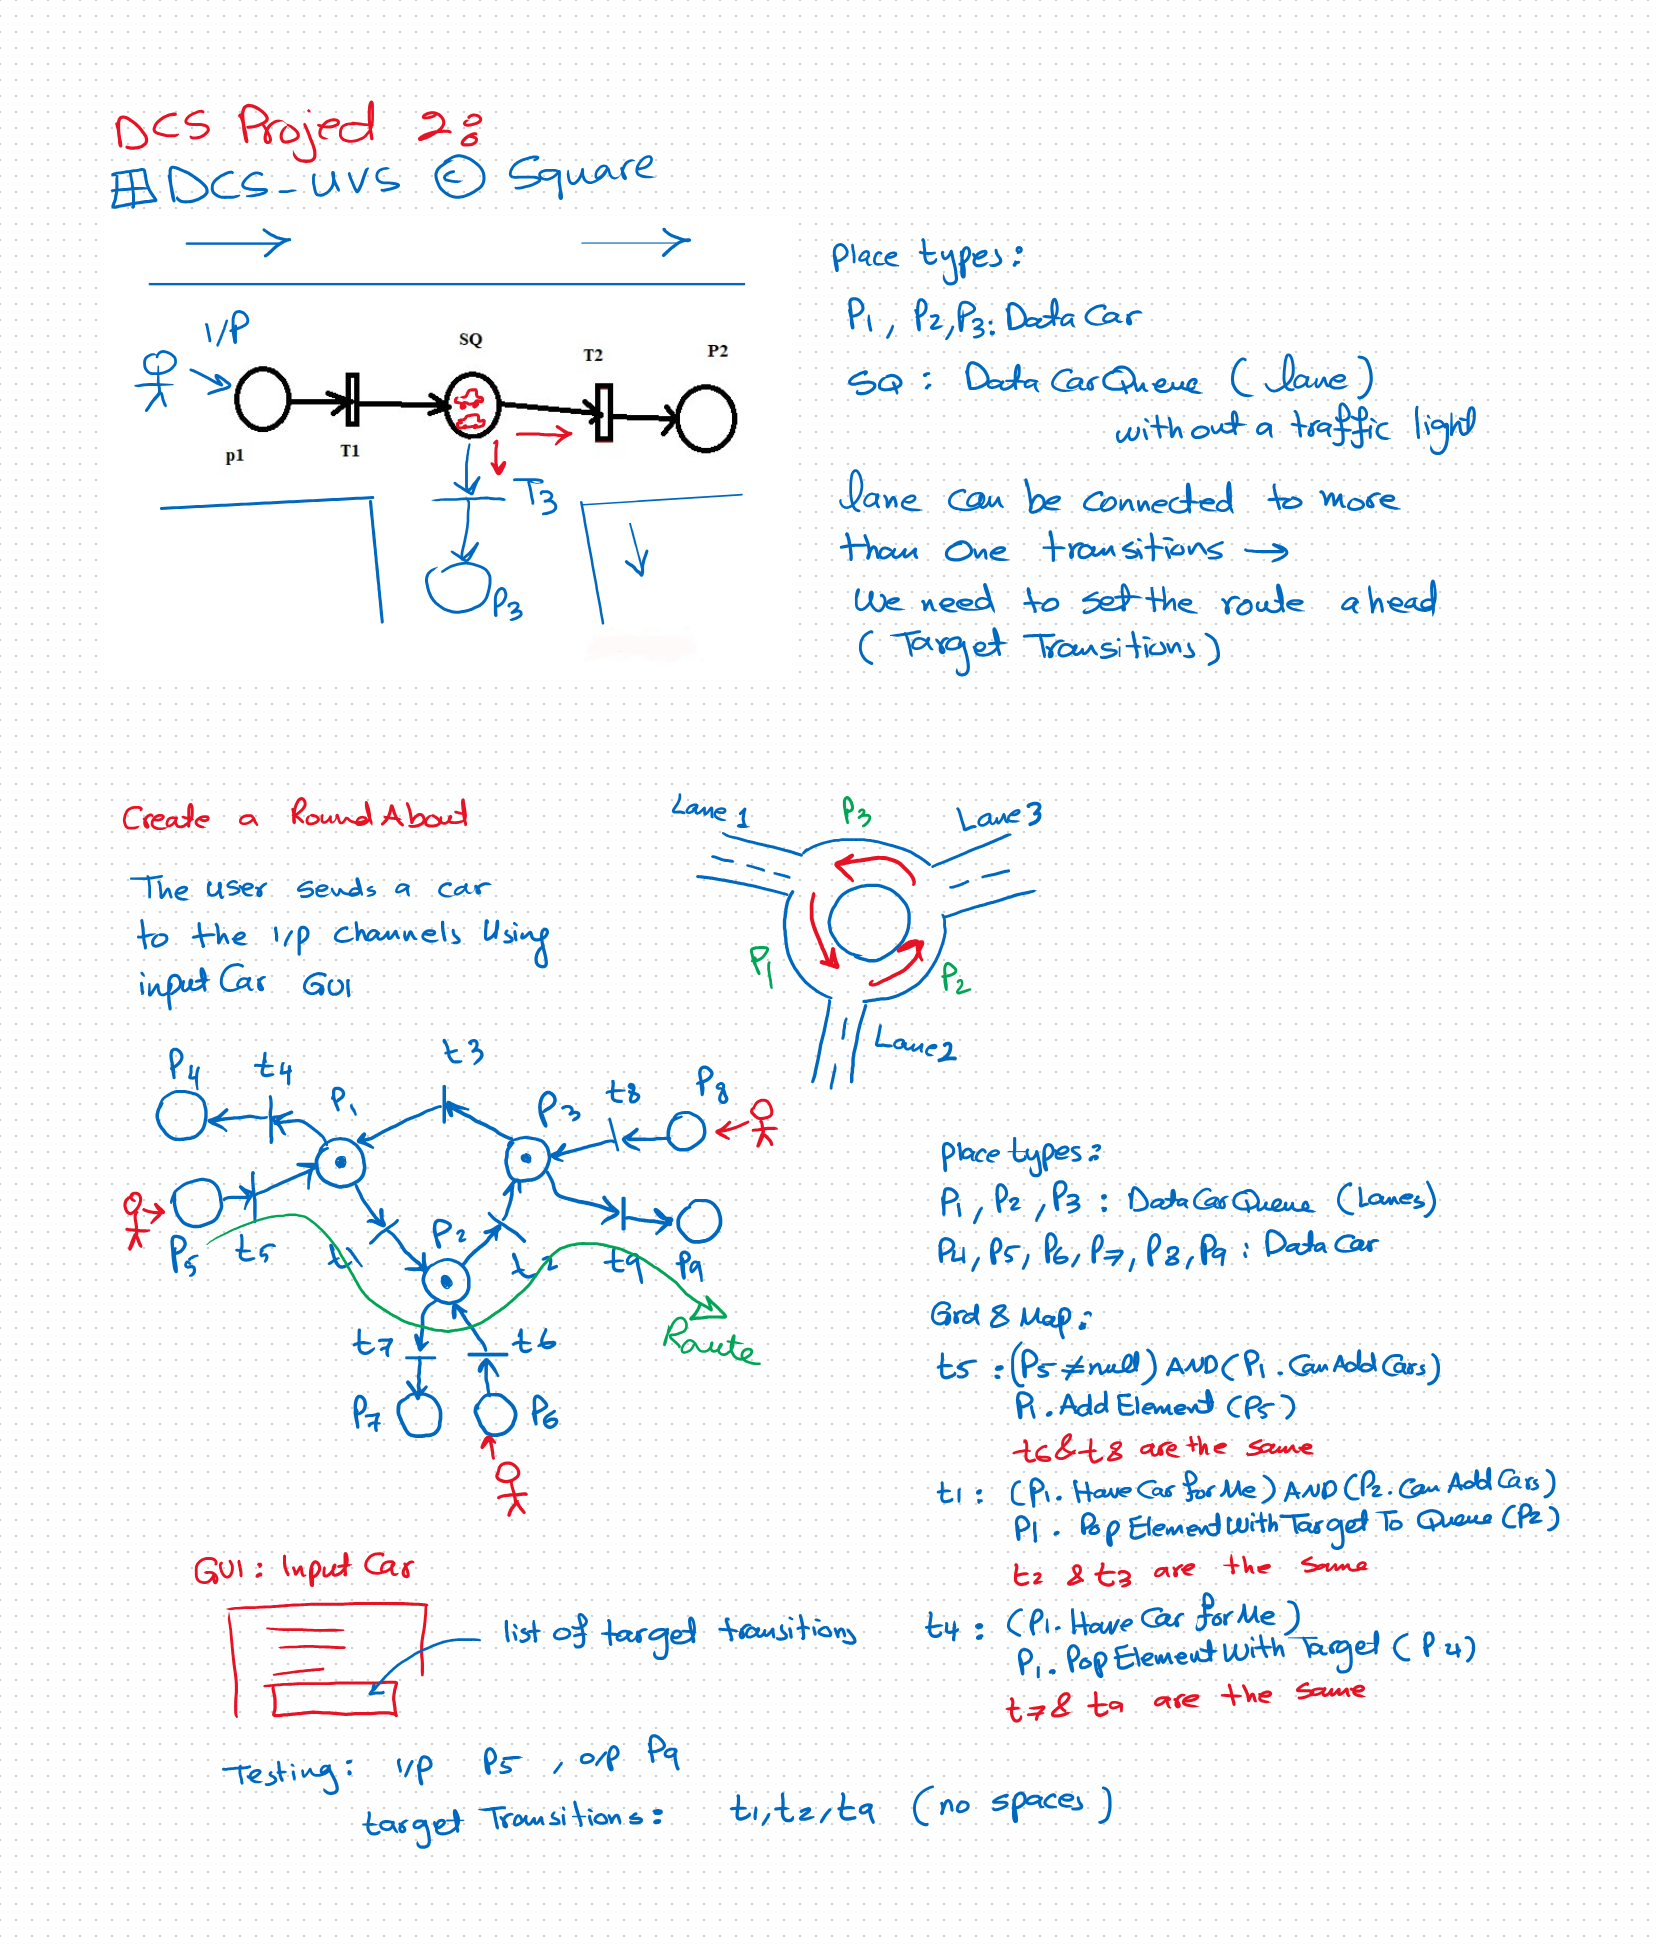 DCS Projed 2:
DCS-UVS © Square
Place types:
P1, P2, P3: DataCar
SQ: DataCarQueue (lane)
without a traffic light
lane can be connected to more
than one transitions →
We need to set the route ahead
(Target Transitions)
I/P
SQ
T2
P2
p1
T1
T3
P3
Create a RoundAbout
The user sends a car
to the I/p channels Using
input Car GUI
Lane 1
P3
Lane3
P1
P2
Lane2
P4
t4
P1
t3
P3
t8
P8
P5
t5
t1
P2
t2
t9
P9
Route
t7
t6
P7
P6
Place types:
P1, P2, P3: DataCarQueue (Lanes)
P4, P5, P6, P7, P8, P9: DataCar
Grd & Map:
t5: (P5≠null) AND (P1.CanAddCars)
P1.AddElement(P5)
t6 & t8 are the same
t1: (P1.HaveCarforMe) AND (P2.CanAddCars)
P1.PopElementWithTargetToQueue(P2)
t2 & t3 are the same
t4: (P1.HaveCarforMe)
P1.PopElementWithTarget(P4)
t7 & t9 are the same
GUI: Input Car
list of target transitions
Testing: I/P P5, o/p P9
target Transitions: t1,t2,t9 (no spaces)